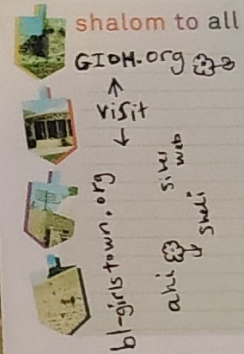 shalom to all
GIOH.org
visit
bl-girlstown.org
sites
web
ahi
sheli